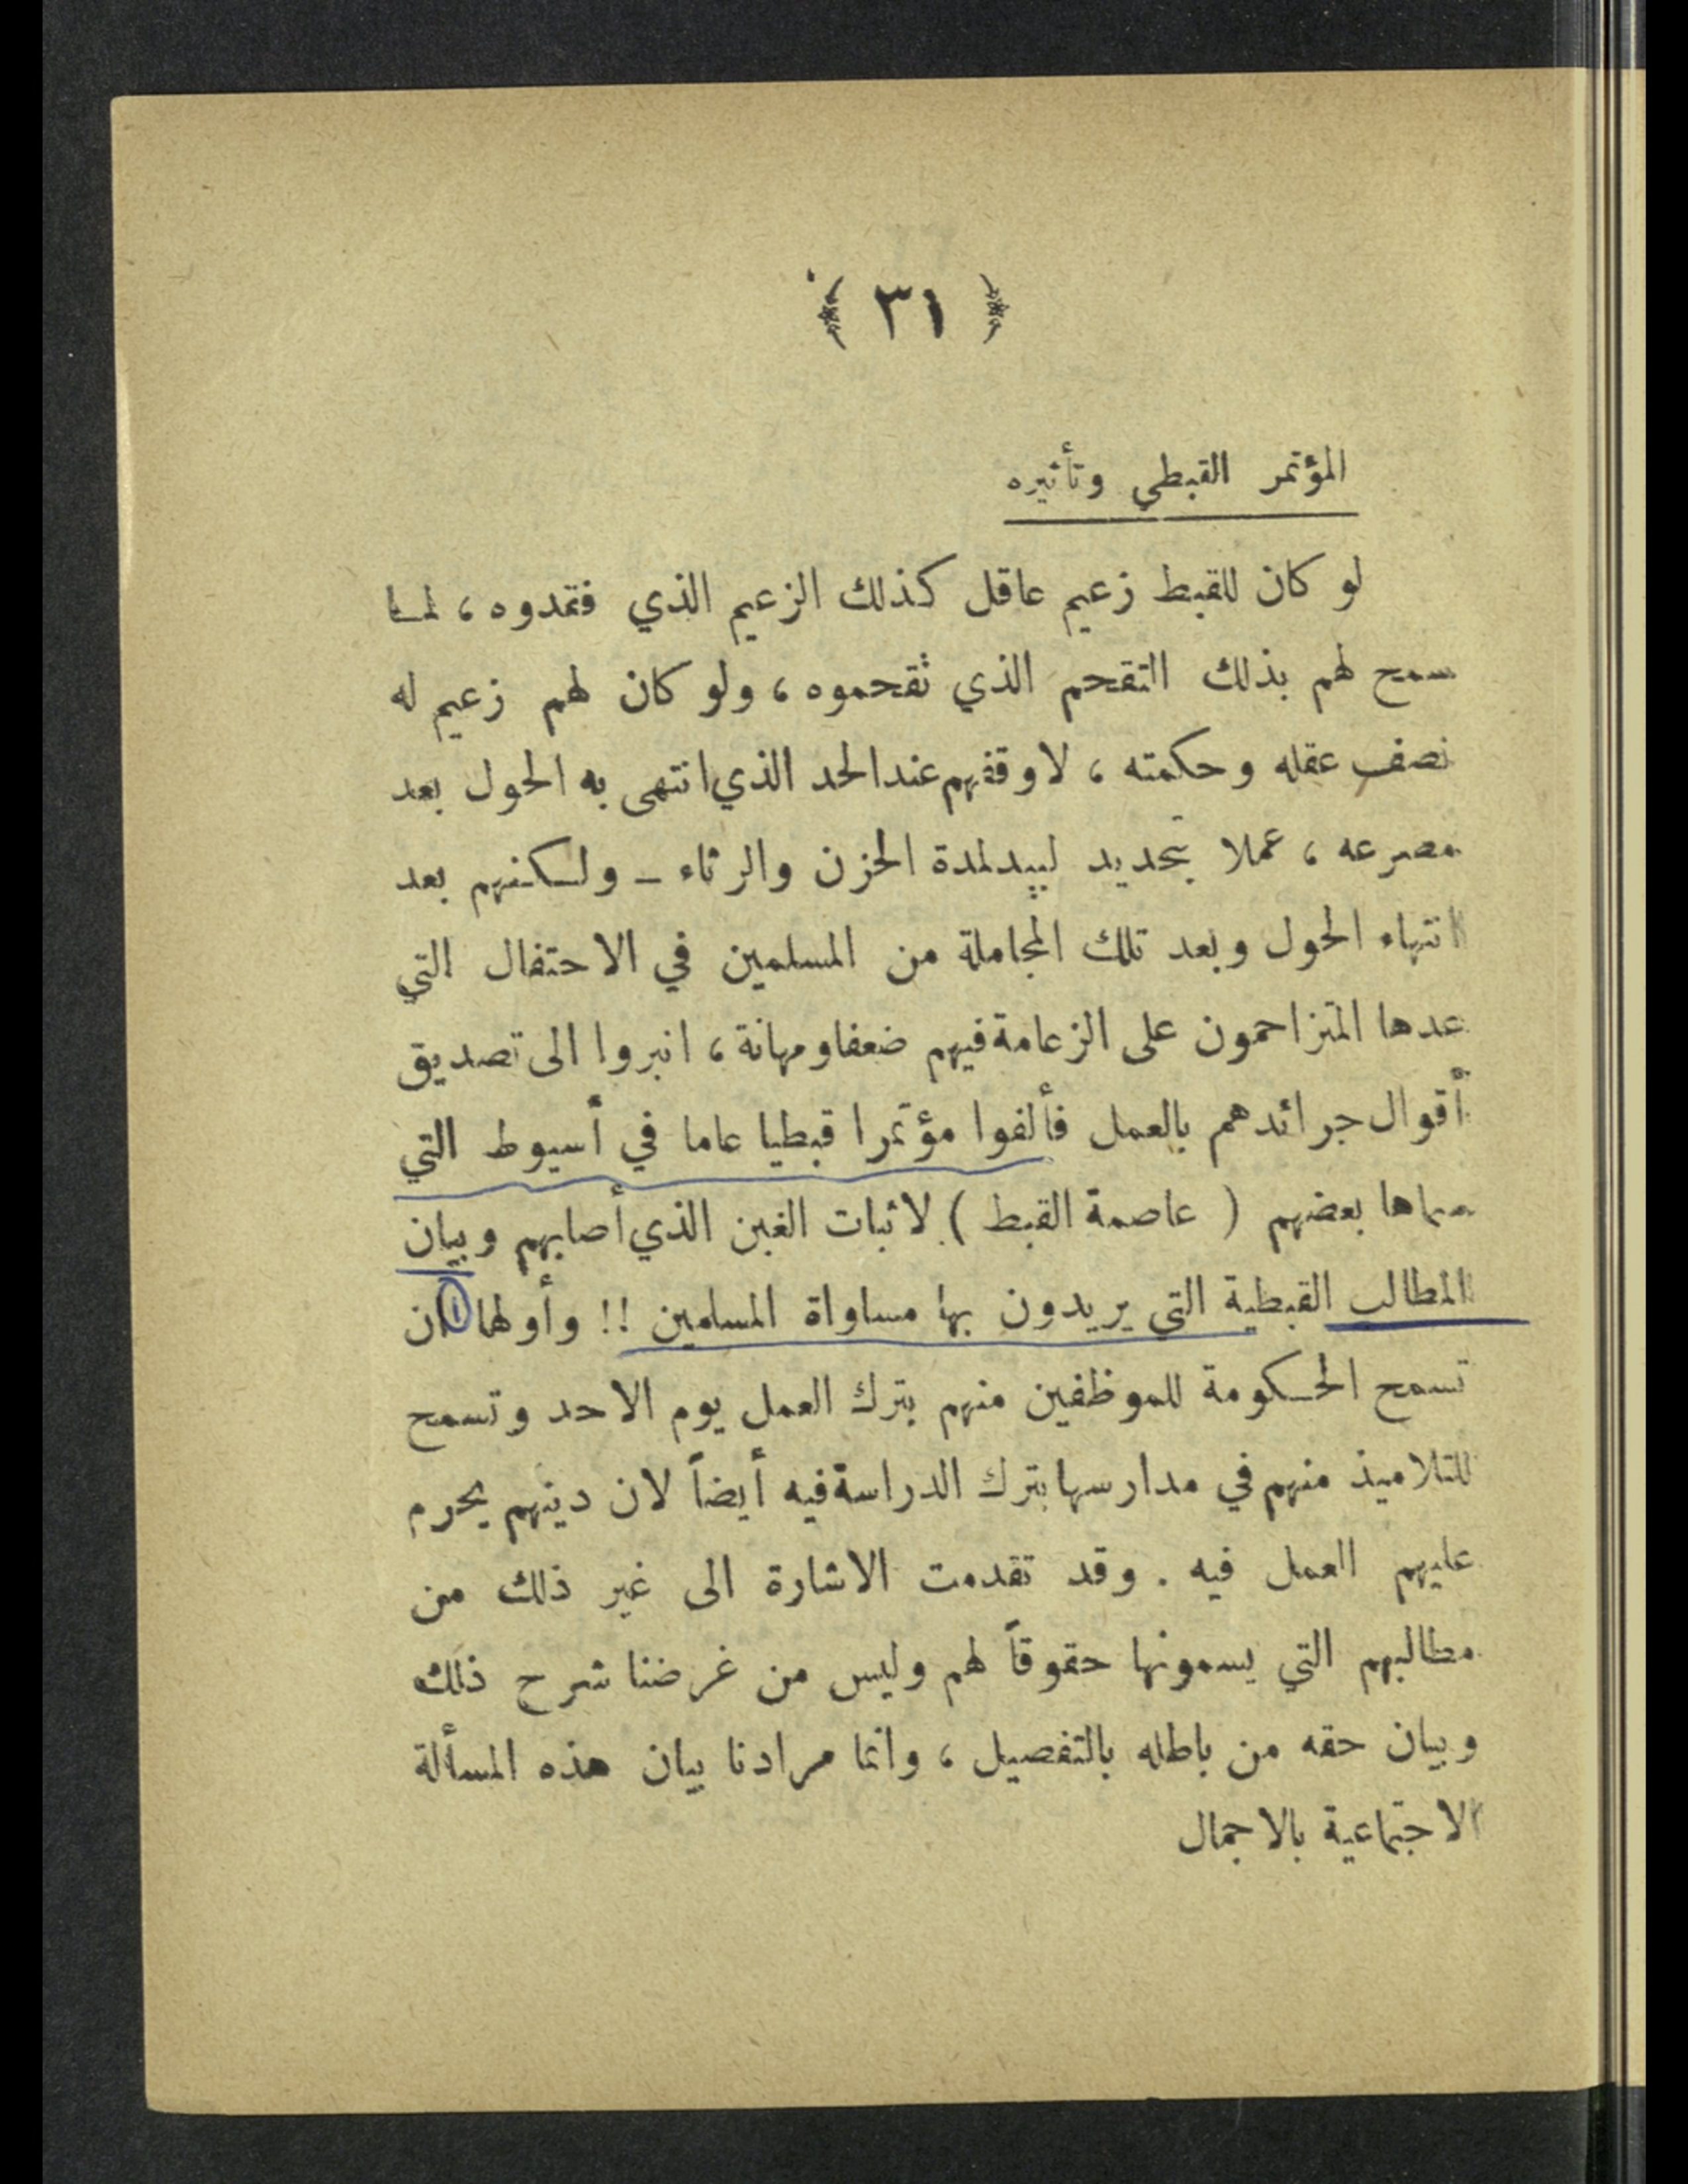 ﴿ ٣١ ﴾
المؤتمر القبطي وتأثيره
لو كان للقبط زعيم عاقل كذلك الزعيم الذي فقدوه ، لما
سمح لهم بذلك التقحم الذي تقحموه ، ولو كان لهم زعيم له
نصف عقله وحكمته ، لاوقفهم عند الحد الذي انتهى به الحول بعد
مصرعه ، عملا بتحديد لبيد لمدة الحزن والرثاء – ولكنهم بعد
انتهاء الحول وبعد تلك المجاملة من المسلمين في الاحتفال التي
عدها المتزاحمون على الزعامة فيهم ضعفا ومهانة ، انبروا الى تصديق
أقوال جرائدهم بالعمل فألفوا مؤتمرا قبطيا عاما في أسيوط التي
سماها بعضهم ( عاصمة القبط ) لاثبات الغبن الذي أصابهم وبيان
المطالب القبطية التي يريدون بها مساواة المسلمين !! وأولها ١ ان
تسمح الحكومة للموظفين منهم بترك العمل يوم الاحد وتسمح
للتلاميذ منهم في مدارسها بترك الدراسة فيه أيضاً لان دينهم يحرم
عليهم العمل فيه . وقد تقدمت الاشارة الى غير ذلك من
مطالبهم التي يسمونها حقوقاً لهم وليس من غرضنا شرح ذلك
وبيان حقه من باطله بالتفصيل ، وانما مرادنا بيان هذه المسألة
الاجتماعية بالاجمال